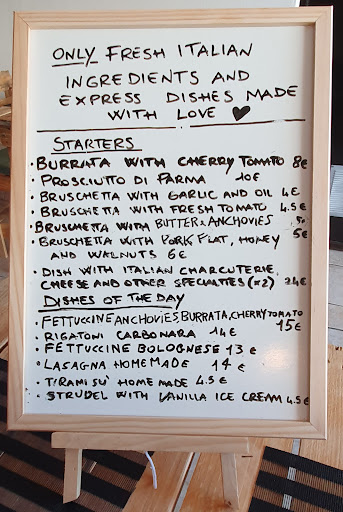 ONLY FRESH ITALIAN
INGREDIENTS AND
EXPRESS DISHES MADE
WITH LOVE ♥
STARTERS
• BURRATA WITH CHERRY TOMATO 8€
• PROSCIUTTO DI PARMA 10€
• BRUSCHETTA WITH GARLIC AND OIL 4€
• BRUSCHETTA WITH FRESH TOMATO 4.5€
• BRUSCHETTA WITH BUTTER & ANCHOVIES
• BRUSCHETTA WITH PORK FLAT, HONEY 5€
AND WALNUTS 6€
• DISH WITH ITALIAN CHARCUTERIE,
CHEESE AND OTHER SPECIALTIES (x2) 24€
DISHES OF THE DAY
• FETTUCCINE ANCHOVIES, BURRATA, CHERRY TOMATO
15€
• RIGATONI CARBONARA 14€
• FETTUCCINE BOLOGNESE 13€
• LASAGNA HOMEMADE 14€
• TIRAMISU' HOME MADE 4.5€
• STRUDEL WITH VANILLA ICE CREAM 4.5€